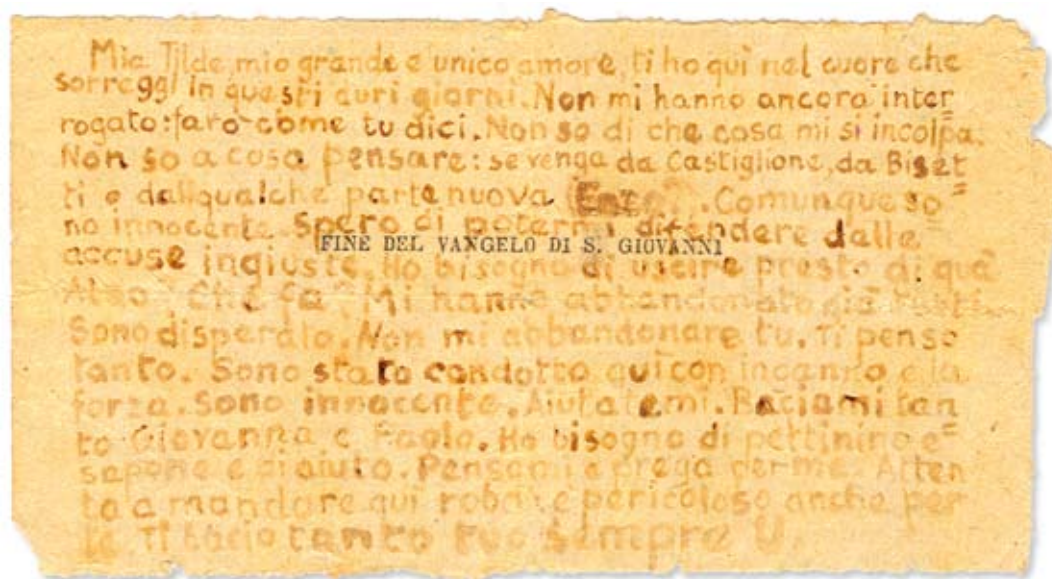 Mia Tilde, mio grande e unico amore, ti ho quì nel cuore che
sorreggi in questi duri giorni. Non mi hanno ancora inter=
rogato: farò come tu dici. Non so di che cosa mi si incolpa.
Non so a cosa pensare: se venga da Castiglione, da Biset=
ti o da qualche parte nuova (Enzo?). Comunque so=
no innocente. Spero di potermi difendere dalle
FINE DEL VANGELO DI S. GIOVANNI
accuse ingiuste. Ho bisogno di uscire presto di quà
Che fa? Mi hanno abbandonato già tutti
Sono disperato. Non mi abbandonare tu. Ti penso
tanto. Sono stato condotto quì con inganno e la
forza. Sono innocente. Aiutatemi. Baciami tan
to Giovanna e Paolo. Ho bisogno di pettinino e=
sapone e di aiuto. Pensami e prega per me. Atten
ta a mandare quì roba: è pericoloso anche per
te. Ti bacio tanto tuo sempre U.